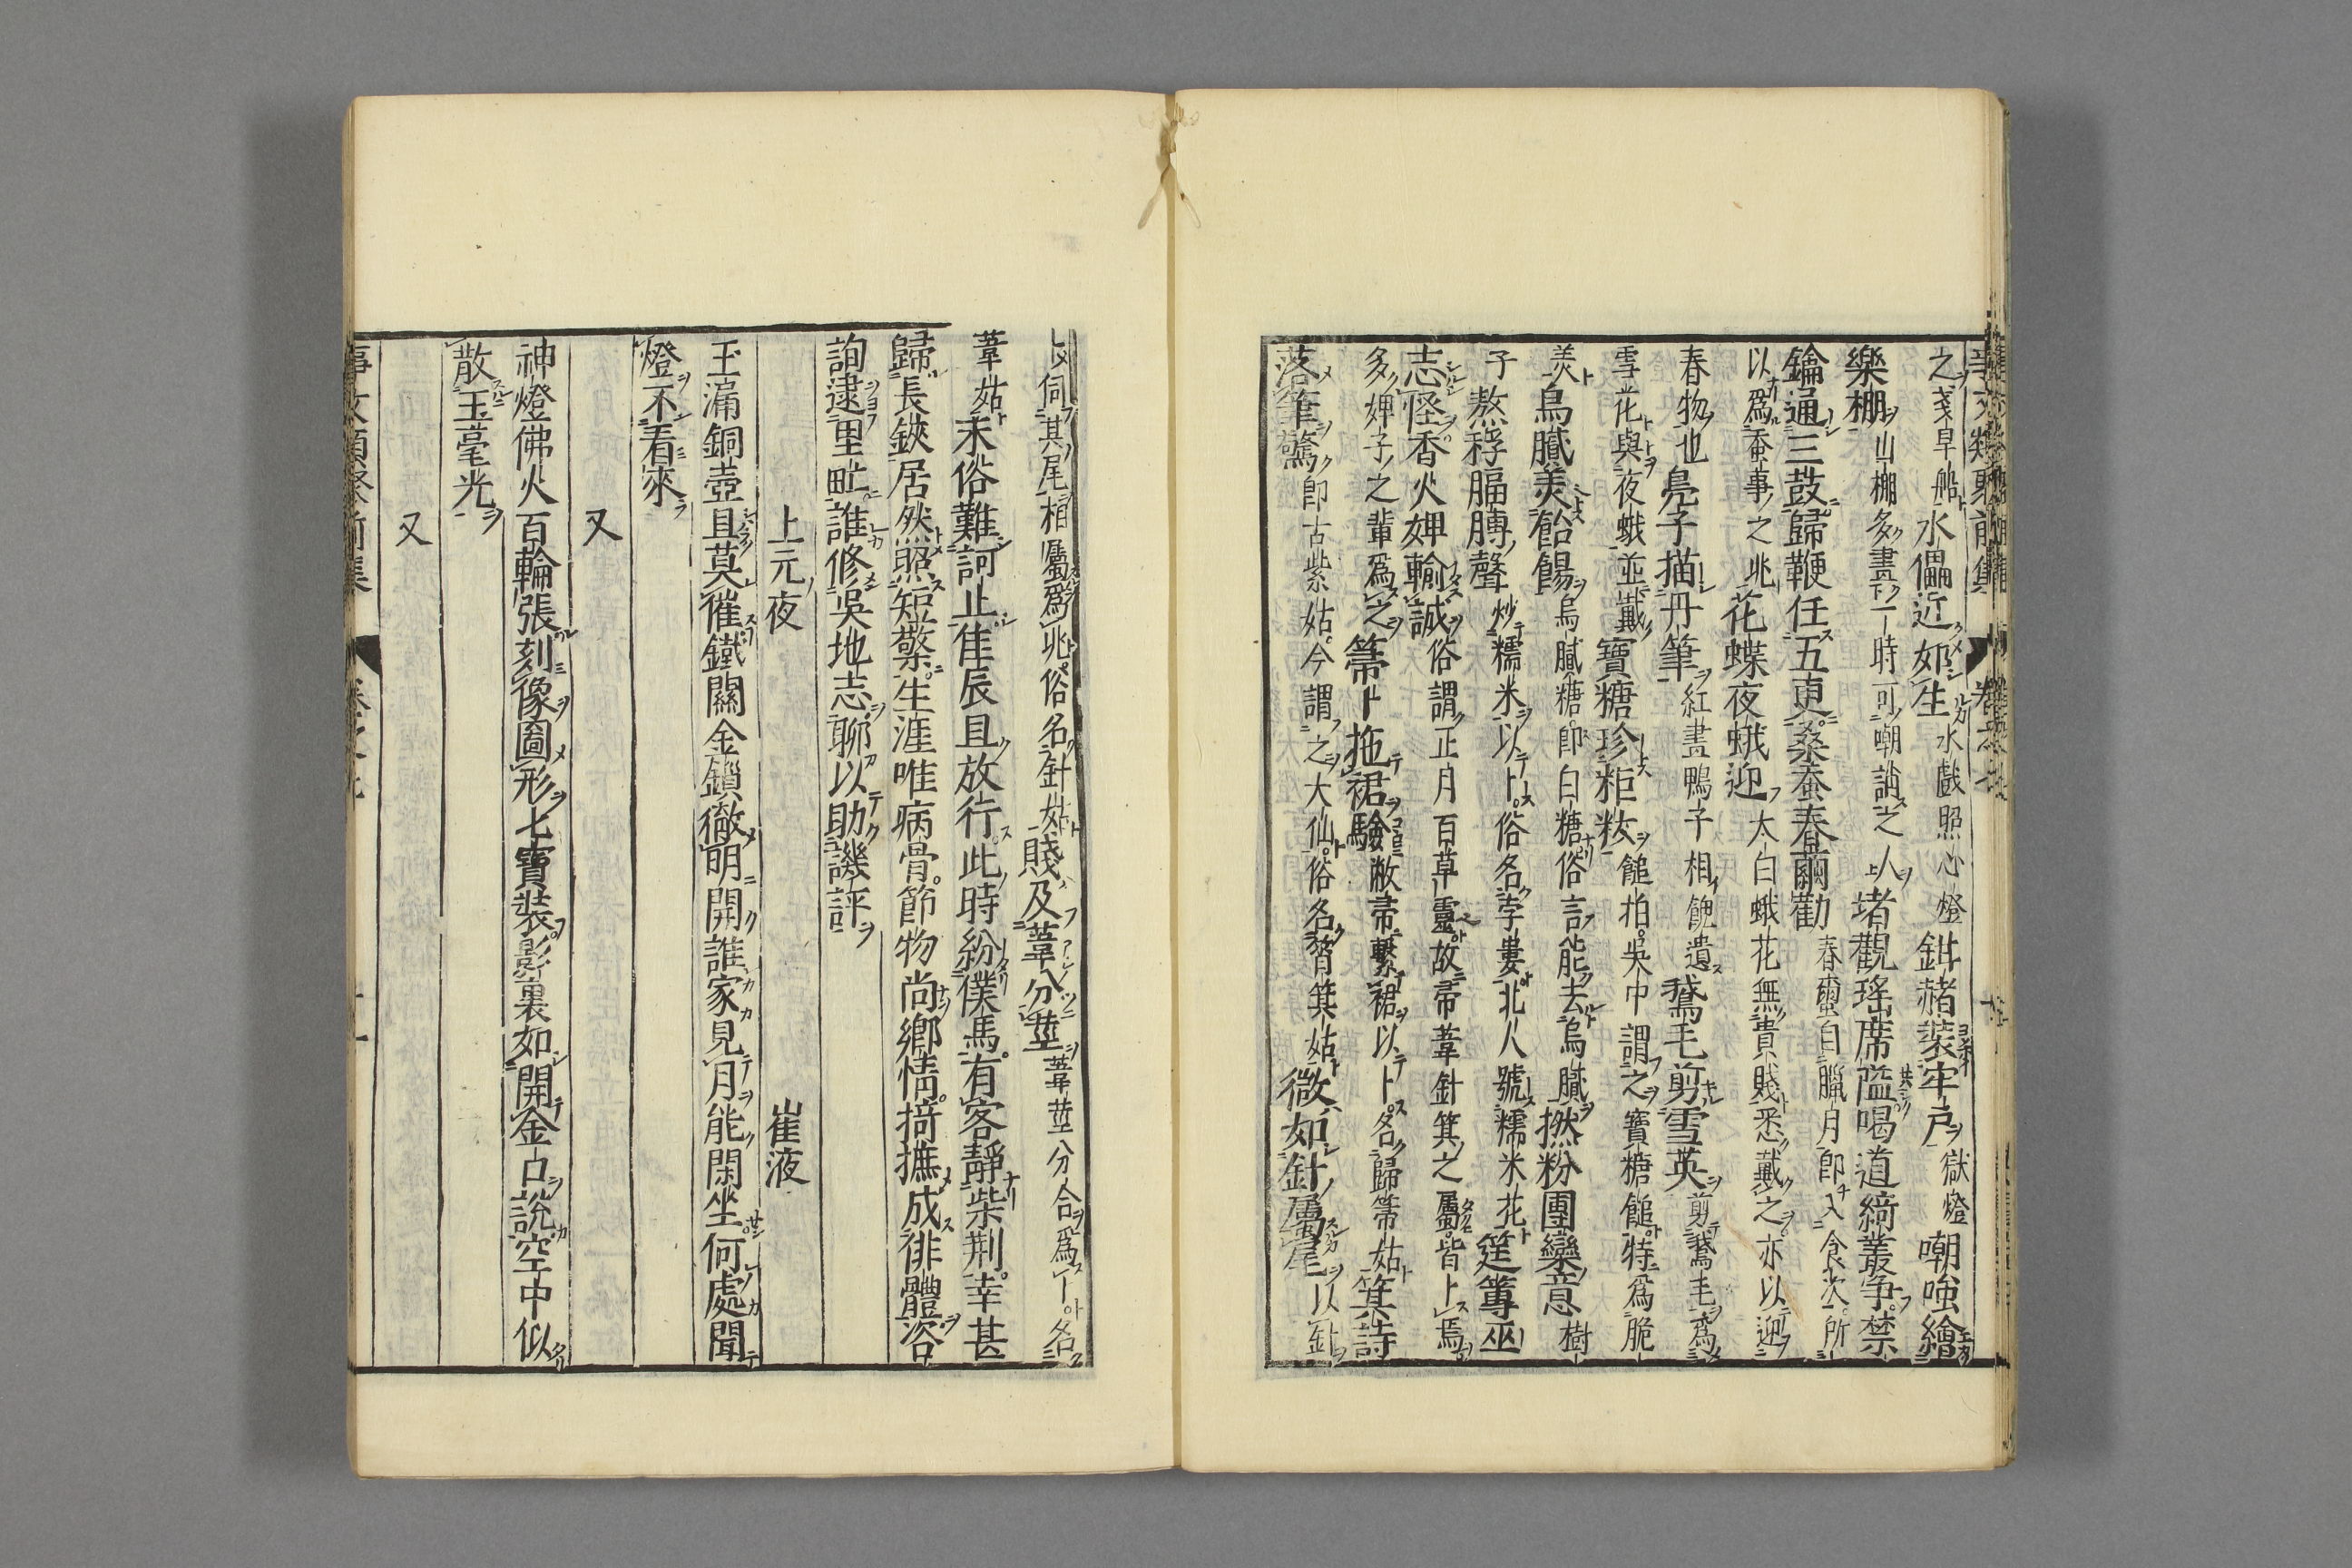 之戔旱船水儡近如生水戲照心燈鉗赭裝牢戶獄燈嘲嗤繪
樂棚山棚多畫下一時可嘲誚之人上堵觀瑤席隘喝道綺叢争禁
鑰通三鼓歸鞭任五更桑蚕春繭勸春蠒自臘月即入食次所
以爲蚕事之兆花蝶夜蛾迎大白蛾花無貴賤悉戴之亦以迎
春物也鳧子描丹筆紅畫鴨子相餽遺鵞毛剪雪英剪鵞毛爲
雪花與夜蛾並戴寶糖珍粔籹餹拍吳中謂之寶糖餹特爲脆
羙烏膩美飴餳烏膩糖即白糖俗言能去烏膩撚粉團欒意樹
子熬稃膈膊聲炒糯米以卜俗名孛婁北人號糯米花筳篿巫
志怪香火婢輸誠俗謂正月百草靈故帚葦針箕之屬皆卜焉
多婢子之輩爲之箒卜拖裙驗敝帚繫裙以卜名歸箒姑箕詩
落筆驚即古紫姑今謂之大仙俗名筲箕姑微如針屬尾以針
伺其尾相屬爲兆俗名針姑賤及葦分莖葦莖分合爲卜名
葦姑末俗難訶止隹辰且放行此時紛僕馬有客靜柴荆幸甚
歸長鋏居然照短檠生涯唯病骨節物尚鄉情掎摭成徘體咨
詢逮里甿誰修吳地志聊以助譏評
上元夜　崔液
玉漏銅壺且莫催鐵關金鎖徹明開誰家見月能閑坐何處聞
燈不看來
又
神燈佛火百輪張刻像圖形七寶裝影裏如開金口說空中似
散玉毫光
又